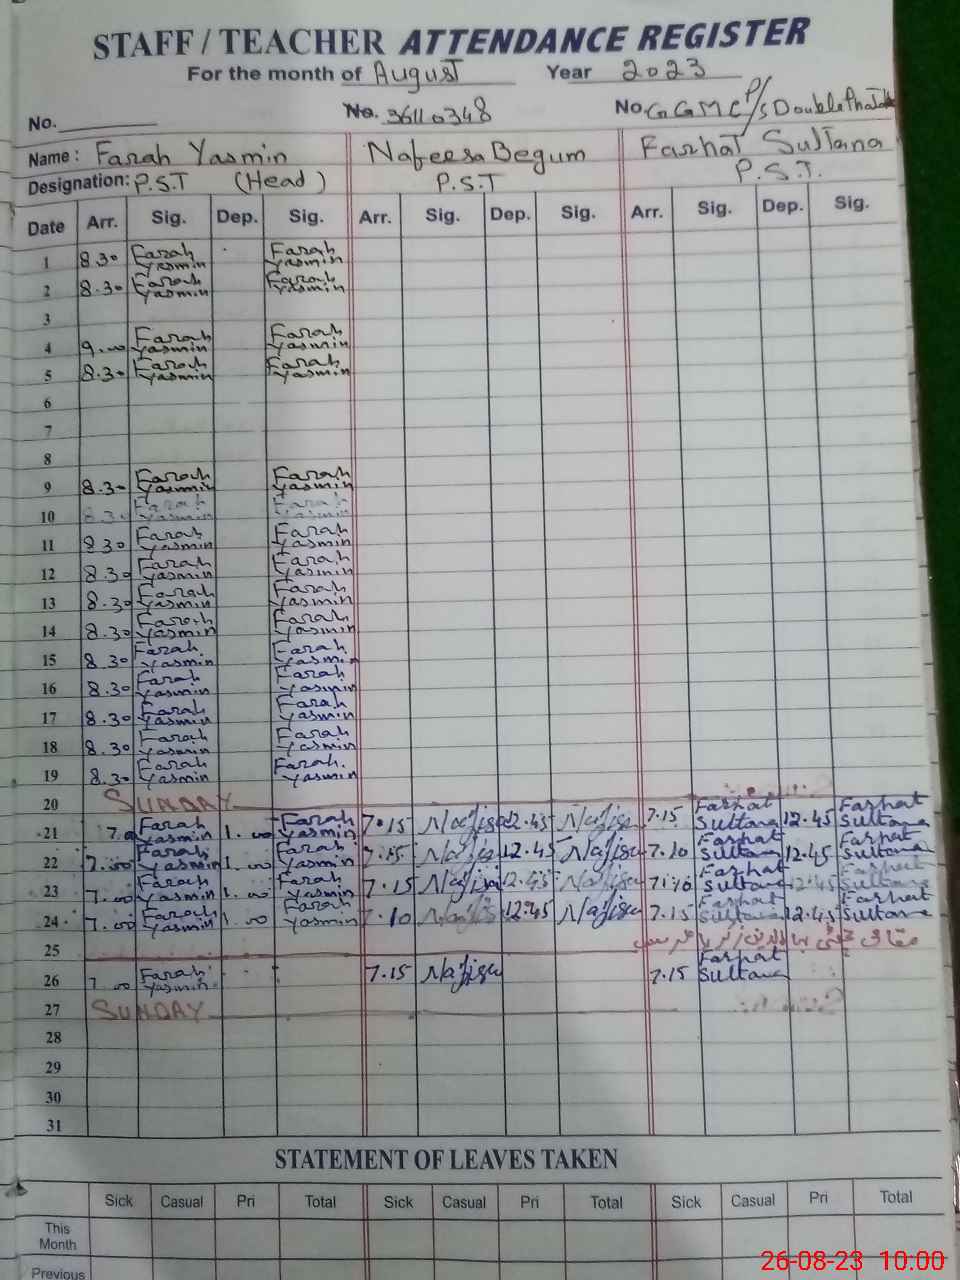 STAFF / TEACHER ATTENDANCE REGISTER
For the month of August Year 2023
No. No. 36110348 No. GGMC P/S Double Phatak
Name: Farah Yasmin Nafeesa Begum Farhat Sultana
Designation: P.S.T (Head) P.S.T P.S.T.
Date Arr. Sig. Dep. Sig. Arr. Sig. Dep. Sig. Arr. Sig. Dep. Sig.
1 8.30 Farah Yasmin Farah Yasmin
2 8.30 Farah Yasmin Farah Yasmin
3
4 9.00 Farah Yasmin Farah Yasmin
5 8.30 Farah Yasmin Farah Yasmin
6
7
8
9 8.30 Farah Yasmin Farah Yasmin
10 8.30 Farah Yasmin Farah Yasmin
11 8.30 Farah Yasmin Farah Yasmin
12 8.30 Farah Yasmin Farah Yasmin
13 8.30 Farah Yasmin Farah Yasmin
14 8.30 Farah Yasmin Farah Yasmin
15 8.30 Farah Yasmin Farah Yasmin
16 8.30 Farah Yasmin Farah Yasmin
17 8.30 Farah Yasmin Farah Yasmin
18 8.30 Farah Yasmin Farah Yasmin
19 8.30 Farah Yasmin Farah Yasmin
20 SUNDAY
21 7.00 Farah Yasmin 1.00 Farah Yasmin 7.15 Nafisa 12.45 Nafisa 7.15 Farhat Sultana 12.45 Farhat Sultana
22 7.00 Farah Yasmin 1.00 Farah Yasmin 7.15 Nafisa 12.45 Nafisa 7.10 Farhat Sultana 12.45 Farhat Sultana
23 7.00 Farah Yasmin 1.00 Farah Yasmin 7.15 Nafisa 12.45 Nafisa 7.10 Farhat Sultana 12.45 Farhat Sultana
24 7.00 Farah Yasmin 1.00 Farah Yasmin 7.10 Nafisa 12.45 Nafisa 7.15 Farhat Sultana 12.45 Farhat Sultana
25 مقامی چھٹی بہاؤالدین زکریا عرس
26 7.00 Farah Yasmin 7.15 Nafisa 7.15 Farhat Sultana
27 SUNDAY
28
29
30
31
STATEMENT OF LEAVES TAKEN
Sick Casual Pri Total Sick Casual Pri Total Sick Casual Pri Total
This Month
Previous
26-08-23 10:00